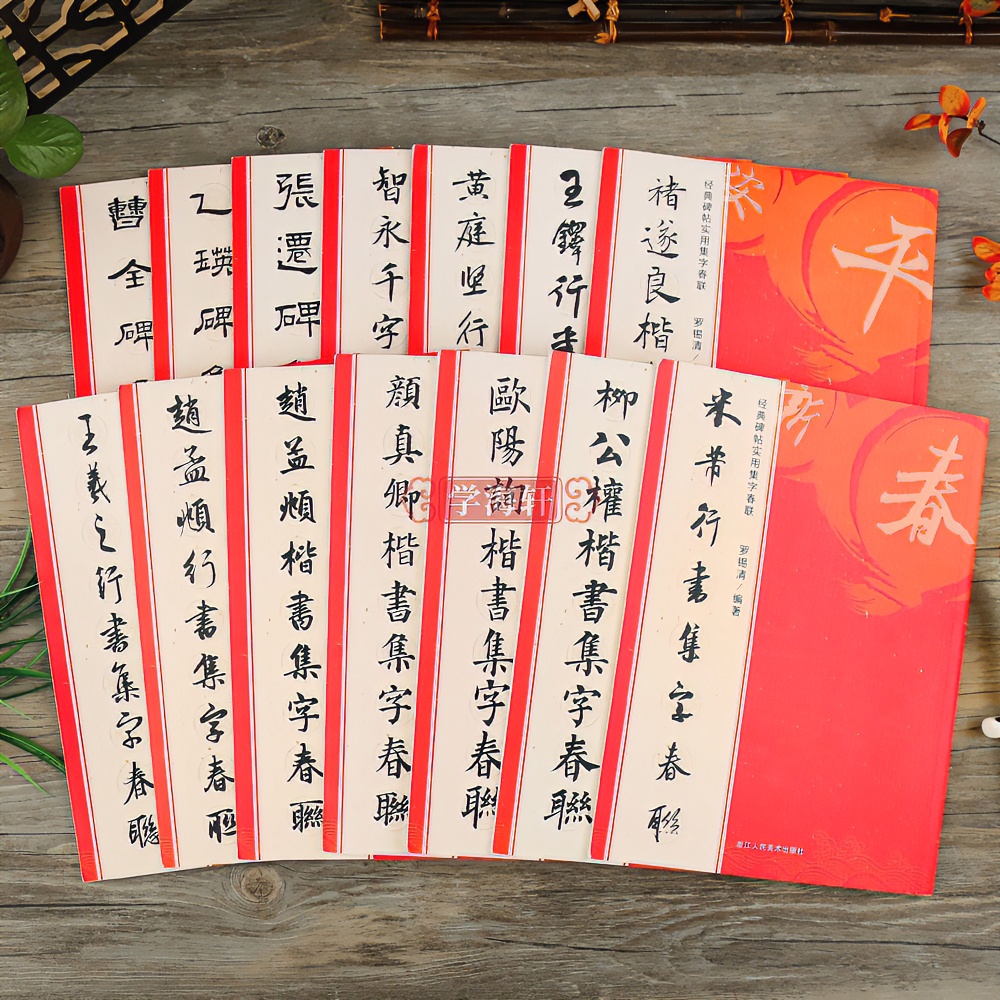 曹全碑
乙瑛碑
張遷碑
智永千字
黄庭坚行
王鐸行書
褚遂良楷
经典碑帖实用集字春联
罗锡清
平
王羲之行書集字春聯
趙孟頫行書集字春聯
趙孟頫楷書集字春聯
顔真卿楷書集字春聯
歐陽詢楷書集字春聯
柳公權楷書集字春聯
米芾行書集字春聯
经典碑帖实用集字春联
罗锡清/编著
新
春
浙江人民美术出版社
学海轩